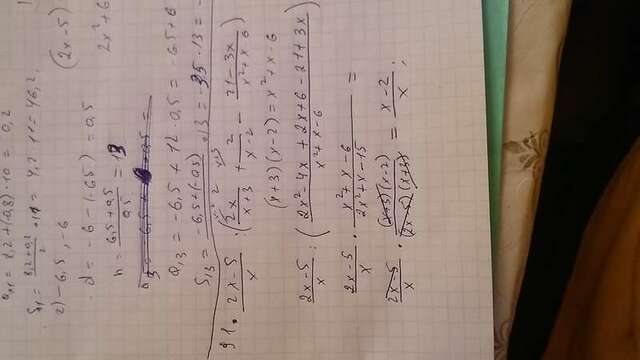 a₁₁ = 8,2+(-0,8)·10 = 0,2
S₁₁ = (8,2+0,2)/2 · 11 = 4,2·11 = 46,2.
2) -6,5, -6
d = -6-(-6,5) = 0,5
n = (6,5+0,5)/0,5 = 13
(2x-5)
2x²+6
a₁₃ = -6,5+12·0,5 = -6,5+6
S₁₃ = (-6,5+(-0,5))/2 · 13 = -3,5·13 = -
91. (2x-5)/x : (2x/(x+3) + 2/(x-2) - (21-3x)/(x²+x-6))
(x+3)(x-2) = x²+x-6
(2x-5)/x : ((2x²-4x+2x+6-21+3x)/(x²+x-6))
(2x-5)/x · (x²+x-6)/(2x²+x-15) =
(2x-5)/x · ((x+3)(x-2))/((2x-5)(x+3)) = (x-2)/x ;